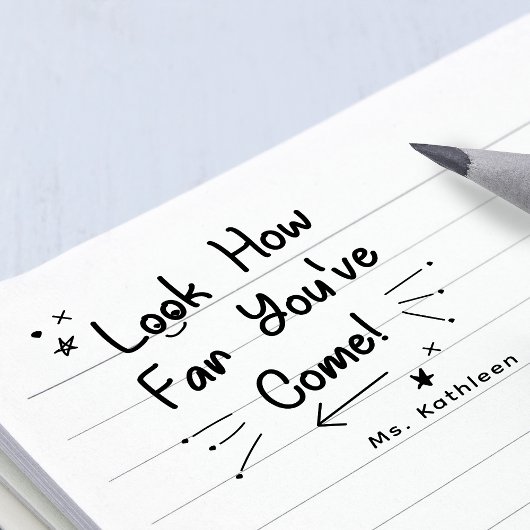 Look How
Far You've
Come!
Ms. Kathleen